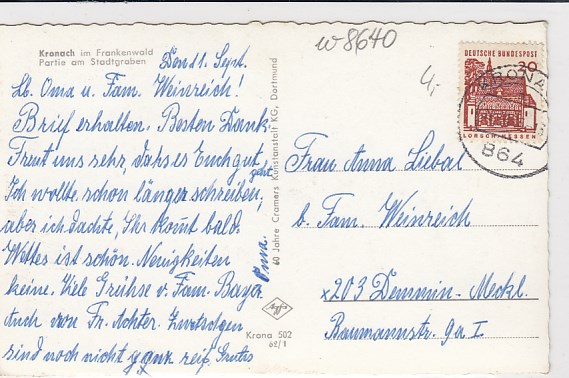 Kronach im Frankenwald
Partie am Stadtgraben
1. Sept.
Lb. Oma u. Fam. Weinreich!
Brief erhalten. Besten Dank.
Freut uns sehr, daß es Euch gut
geht.
Ich wollte schon länger schreiben,
aber ich dachte, Ihr kommt bald.
Wetter ist schön. Neuigkeiten
keine. Viele Grüße v. Fam. Bayer
Auch von Fr. Achter. Zwetschgen
sind noch nicht ganz reif. Gruß
Anna.
60 Jahre Cramers Kunstanstalt KG, Dortmund
Agfa
Krona 502
62/1
w8640
4,-
DEUTSCHE BUNDESPOST
20
LORSCH/HESSEN
KRONA
864
Frau Anna Liebal
b. Fam. Weinreich
x203 Demmin-Meckl.
Baumannstr. 9a I